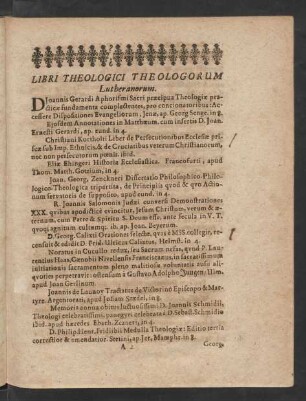 LIBRI THEOLOGICI THEOLOGORUM
Lutheranorum.
DIoannis Gerardi Aphorismi Sacri præcipua Theologiæ pra-
cticæ fundamenta complectentes, pro concionatoribus: Ac-
cessere Dispositiones Evangeliorum, Jenæ, ap. Georg Senge. in 8.
Ejusdem Annotationes in Matthæum, cum insertis D. Joan.
Ernesti Gerardi, ap. eund. in 4.
Christiani Kortholti Liber de Persecutionibus Ecclesiæ pri-
scæ sub Imp. Ethnicis, & de Cruciatibus veterum Christianorum,
nec non persecutorum pœnis. ibid.
Eliæ Ehingeri Historia Ecclesiastica. Francofurti, apud
Thom. Matth. Götzium, in 4.
Joan. Georg. Zenckneri Dissertatio Philosophico-Philo-
logico-Theologica tripartita, de Principiis quod & quo Actio-
num servatoris & supposito, apud eund. in 4.
R. Joannis Salomonis Judæi conversi Demonstrationes
XXX. quibus apodicticè evincitur, Jesum Christum, verum & æ-
ternum, cum Patre & Spiritu S. Deum esse, ante secula in V. T.
quoq; agnitum, cultumq; ib. ap. Joan. Beyerum.
D. Georg. Calixti Orationes selectæ, quas ex MSS. collegit, re-
censuit & edidit D. Frid. Ulricus Calixtus, Helmst. in 4.
Noratus in Cunulis
rentius Haraeus, Genobii Nivellensis Franciscanus, in
initiationis sacramentum plenè
quentes prævaricator: ostensus à Gustavo Adolpho Jungen/ Ulmæ,
apud Joan Gerlinum
Joannis de Launoy Tractatus de Victorino Episcopo & Mar-
tyre. Argentorati, apud Josiam Stædel, in 8.
Memoria nonnominis Inclutissimi D. Joannis Schmidii,
Theologi celebratissimi, panegyri celebrata à D. Sebast. Schmidio
ibid. apud hæredes Eberh. Zezneri, in 4.
D. Philippi Ient. Fridlibii Medulla Theologiæ: Editio tertia
correctior & emendatior. Stetini, ap. Jer. Mamphr. in 8.
A 2 Georg.